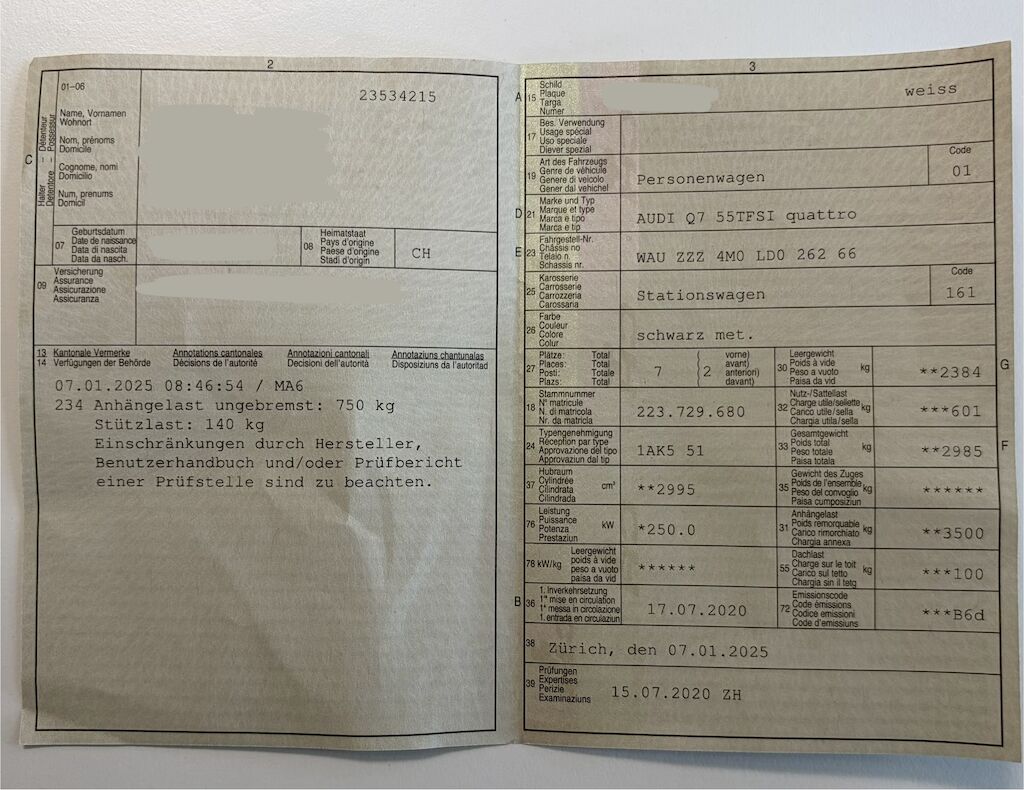 2
01–06
23534215
C
Halter – Détenteur
Detentore – Possessur
Name, Vornamen
Wohnort
Nom, prénoms
Domicile
Cognome, nomi
Domicilio
Num, prenums
Domicil
07
Geburtsdatum
Date de naissance
Data di nascita
Data da nasch.
08
Heimatstaat
Pays d'origine
Paese d'origine
Stadi d'origin
CH
09
Versicherung
Assurance
Assicurazione
Assicuranza
13 Kantonale Vermerke Annotations cantonales Annotazioni cantonali Annotaziuns chantunalas
14 Verfügungen der Behörde Décisions de l'autorité Decisioni dell'autorità Disposiziuns da l'autoritad
07.01.2025 08:46:54 / MA6
234 Anhängelast ungebremst: 750 kg
Stützlast: 140 kg
Einschränkungen durch Hersteller,
Benutzerhandbuch und/oder Prüfbericht
einer Prüfstelle sind zu beachten.
3
A 15
Schild
Plaque
Targa
Numer
weiss
17
Bes. Verwendung
Usage spécial
Uso speciale
Diever spezial
19
Art des Fahrzeugs
Genre de véhicule
Genere di veicolo
Gener dal vehichel
Personenwagen
Code
01
D 21
Marke und Typ
Marque et type
Marca e tipo
Marca e tip
AUDI Q7 55TFSI quattro
E 23
Fahrgestell-Nr.
Châssis no
Telaio n.
Schassis nr.
WAU ZZZ 4M0 LD0 262 66
25
Karosserie
Carrosserie
Carrozzeria
Carossaria
Stationswagen
Code
161
26
Farbe
Couleur
Colore
Colur
schwarz met.
27
Plätze: Total
Places: Total
Posti: Totale
Plazs: Total
7
( vorne)
( 2 avant)
anterior)
( davant)
30
Leergewicht
Poids à vide
Peso a vuoto
Paisa da vid
kg
**2384
G
18
Stammnummer
N° matricule
N. di matricola
Nr. da matricla
223.729.680
32
Nutz-/Sattellast
Charge utile/sellette
Carico utile/sella
Chargia utila/sella
kg
***601
24
Typengenehmigung
Réception par type
Approvazione del tipo
Approvaziun dal tip
1AK5 51
33
Gesamtgewicht
Poids total
Peso totale
Paisa totala
kg
**2985
F
37
Hubraum
Cylindrée
Cilindrata
Cilindrada
cm³
**2995
35
Gewicht des Zuges
Poids de l'ensemble
Peso del convoglio
Paisa cumposiziun
kg
******
76
Leistung
Puissance
Potenza
Prestaziun
kW
*250.0
31
Anhängelast
Poids remorquable
Carico rimorchiato
Chargia annexa
kg
**3500
78 kW/kg
Leergewicht
poids à vide
peso a vuoto
paisa da vid
******
55
Dachlast
Charge sur le toit
Carico sul tetto
Chargia sin il tetg
kg
***100
B 36
1. Inverkehrsetzung
1re mise en circulation
1a messa in circolazione
1. entrada en circulaziun
17.07.2020
72
Emissionscode
Code émissions
Codice emissioni
Code d'emissiuns
***B6d
38
Zürich, den 07.01.2025
39
Prüfungen
Expertises
Perizie
Examinaziuns
15.07.2020 ZH